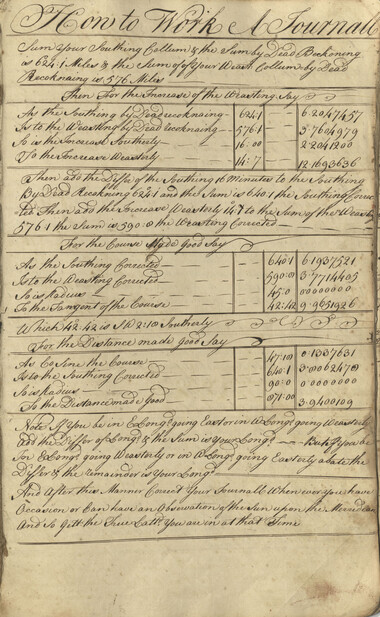 How to Work A Journall
Sum Your Southing Collum & the Sum by Dead Reckoning
is 624:1 Miles & the Sum of of Your Weast Collum by Dead
Recknaing is 576 Miles
Then For the Increase of the Weasting Say
As the Southing by Dead recknaing — 624:1 — 6.2047457
Is to the Weasting by Dead recknaing — 576:1 — 5.7604979
So is the Increase Southerly — 16:00 — 2.2041200
To the Increase Weasterly — 14:7 — 12.1693636
Then add the Diffr. of the Southing 16 Minutes to the Southing
By Dead Reckning 6241 and the Sum is 640:1 the Southing Correc
ted Then add the Increase Weasterly 147 to the Sum of the Weasting
576:1 the Sum is 590:8 the Weasting Corrected
For the Course Made Good Say
As the Southing Corrected — 640:1 — 6.1937521
Is to the Weasting Corrected — 590:8 — 3.7714405
So is Radius — 45:0 — 0.0000000
To the Tangent of the Course — 42:42 — 9.9651926
Which 42:42 is S W 2:18 Southerly
For the Distance made Good Say
As Co Sine the Course — 47:18 — 0.1337631
Is to the Southing Corrected — 640:1 — 3.8062470
So is Radius — 90:0 — 0.0000000
To the Distance made Good — 871:00 — 3.9400109
Note If You be in E Longd. going East or in W Longd. going Weasterly
add the Differ of Longd. & the Sum is your Longd. — But if You be
In E Longd. going Weasterly or in W Longd. going Easterly abate the
Differ & the remainder is Your Longd.
And After this Manner Corect Your Journall When ever You have
Occasion or Can have an Observation of the Sun upon the Meridian
And So gitt the True Lattd. You are in at that Time